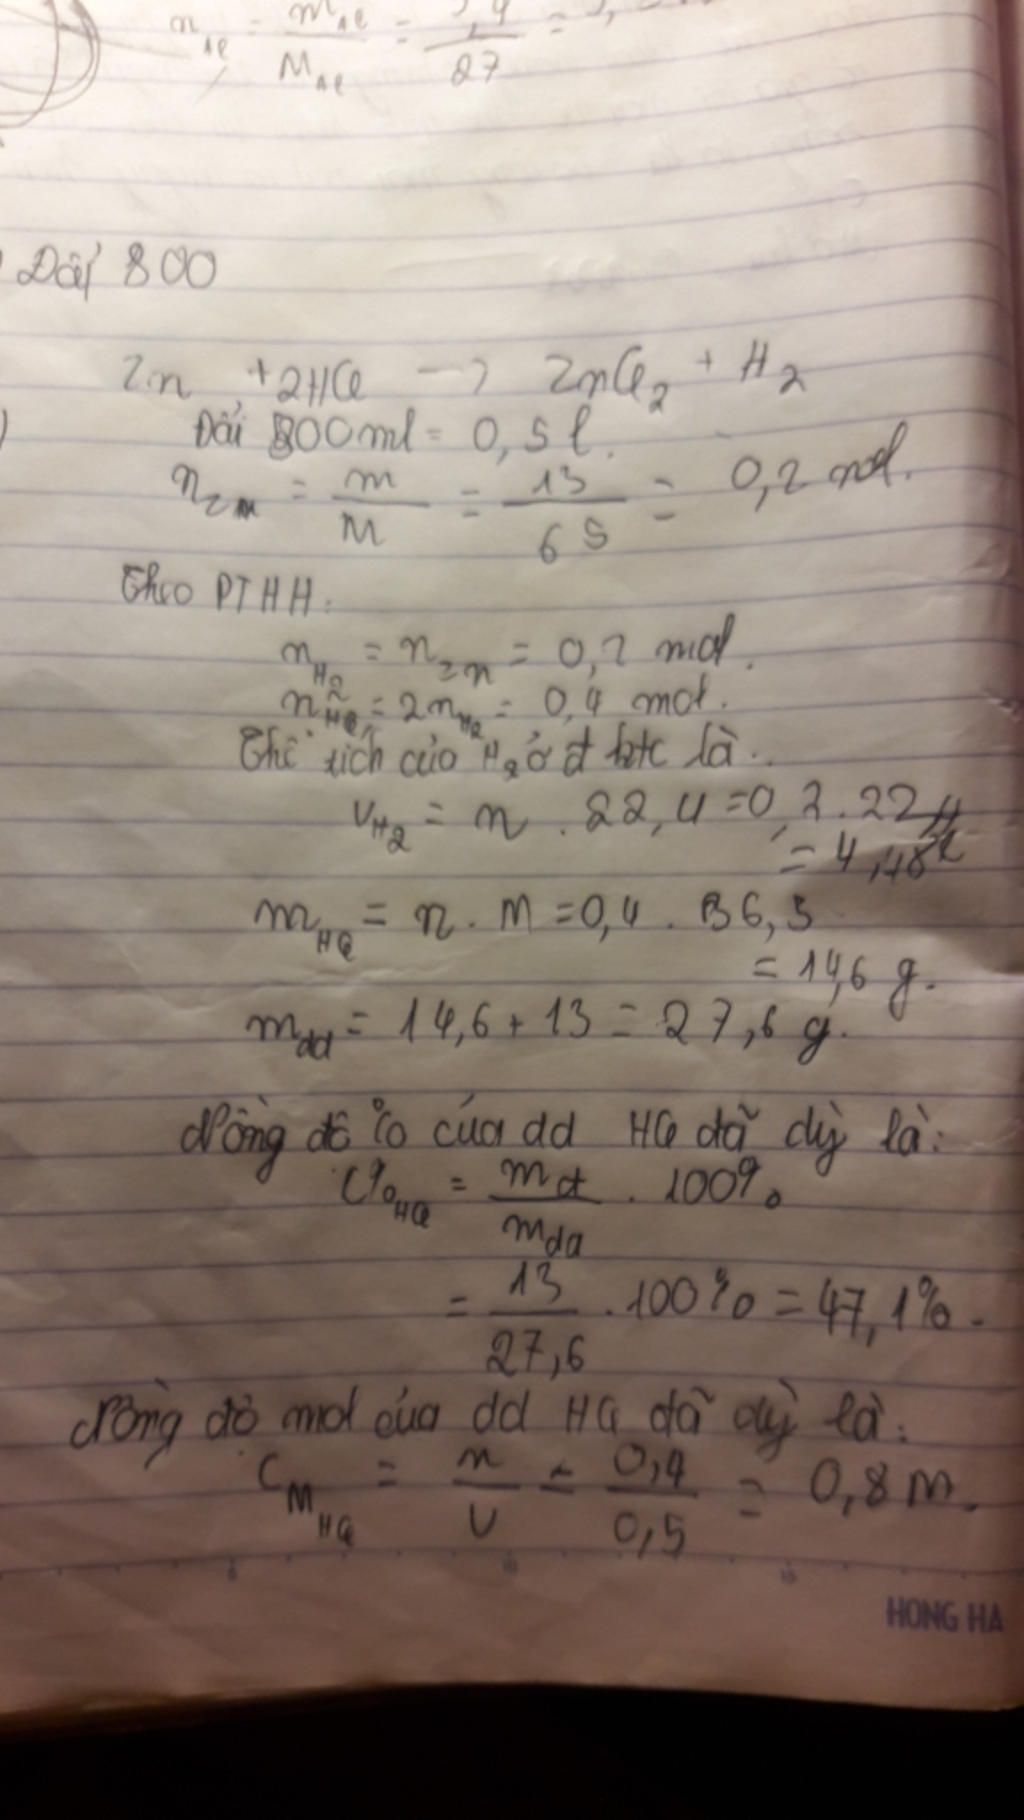 n Al = m Al / M Al = 5,4 / 27 =
Đổi 800
Zn + 2HCl -> ZnCl2 + H2
Đổi 800ml = 0,5 l.
n Zn = m / M = 13 / 65 = 0,2 mol.
Theo PTHH:
n H2 = n Zn = 0,2 mol.
n HCl = 2n H2 = 0,4 mol.
Thể tích của H2 ở đktc là:
V H2 = n . 22,4 = 0,2 . 22,4
= 4,48 l
m HCl = n . M = 0,4 . 36,5
= 14,6 g.
m dd = 14,6 + 13 = 27,6 g.
Nồng độ % của dd HCl đã dù là:
C% HCl = m ct / m dd . 100%
= 13 / 27,6 . 100% = 47,1%.
Nồng độ mol của dd HCl đã dù là:
C M HCl = n / V = 0,4 / 0,5 = 0,8 M.
HONG HA